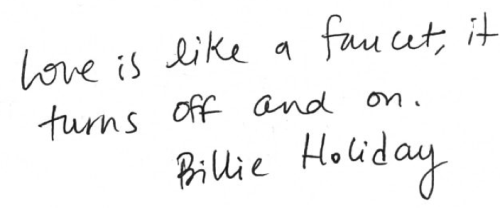 Love is like a faucet, it
turns off and on.
Billie Holiday